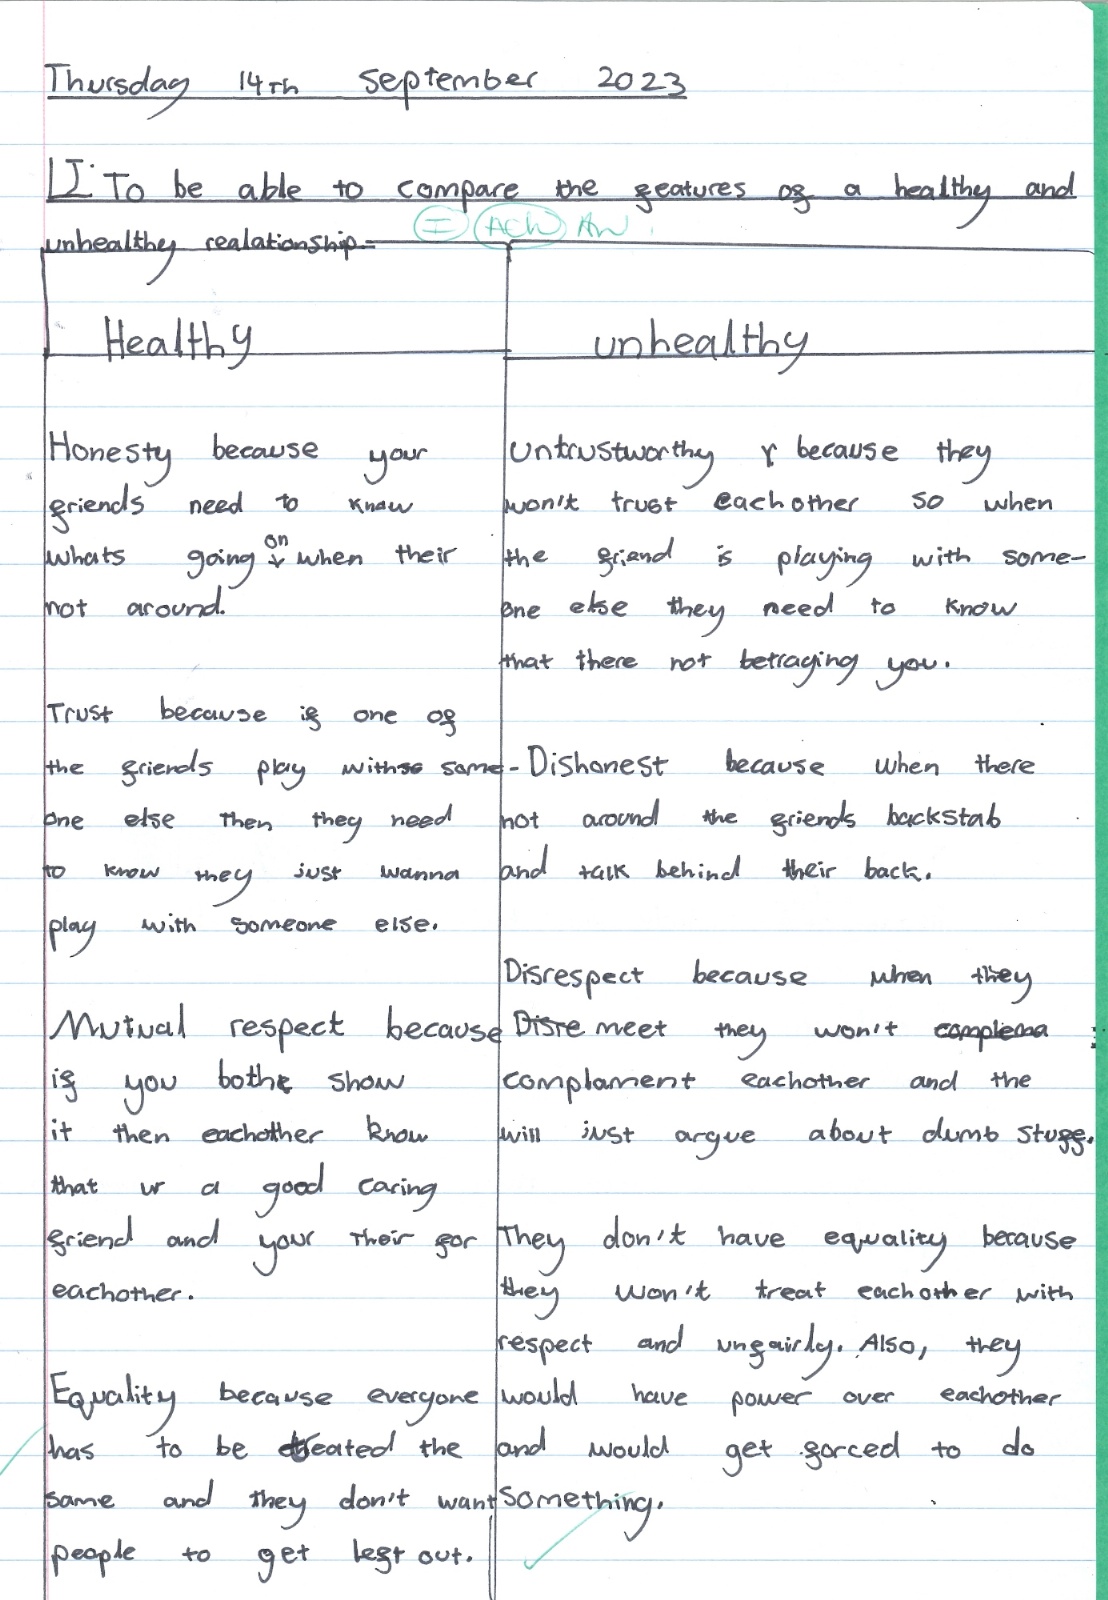 Thursday 14Th September 2023
LI: To be able to compare the features of a healthy and
I ACH AW
unhealthy realationship.
Healthy
Honesty because your
friends need to know
whats going on when their
not around.
Trust because if one of
the friends play withso some-
one else then they need
to know they just wanna
play with someone else.
Mutual respect because
if you bothe show
it then eachother know
that ur a good caring
friend and your their for
eachother.
Equality because everyone
has to be treated the
same and they don't want
people to get left out.
unhealthy
Untrustworthy because they
won't trust eachother so when
the friend is playing with some-
one else they need to know
that there not betraging you.
Dishonest because when there
not around the friends backstab
and talk behind their back.
Disrespect because when they
Disre meet they won't complema
complament eachother and the
will just argue about dumb stuff.
They don't have equality because
they won't treat eachother with
respect and unfairly. Also, they
would have power over eachother
and would get forced to do
something.